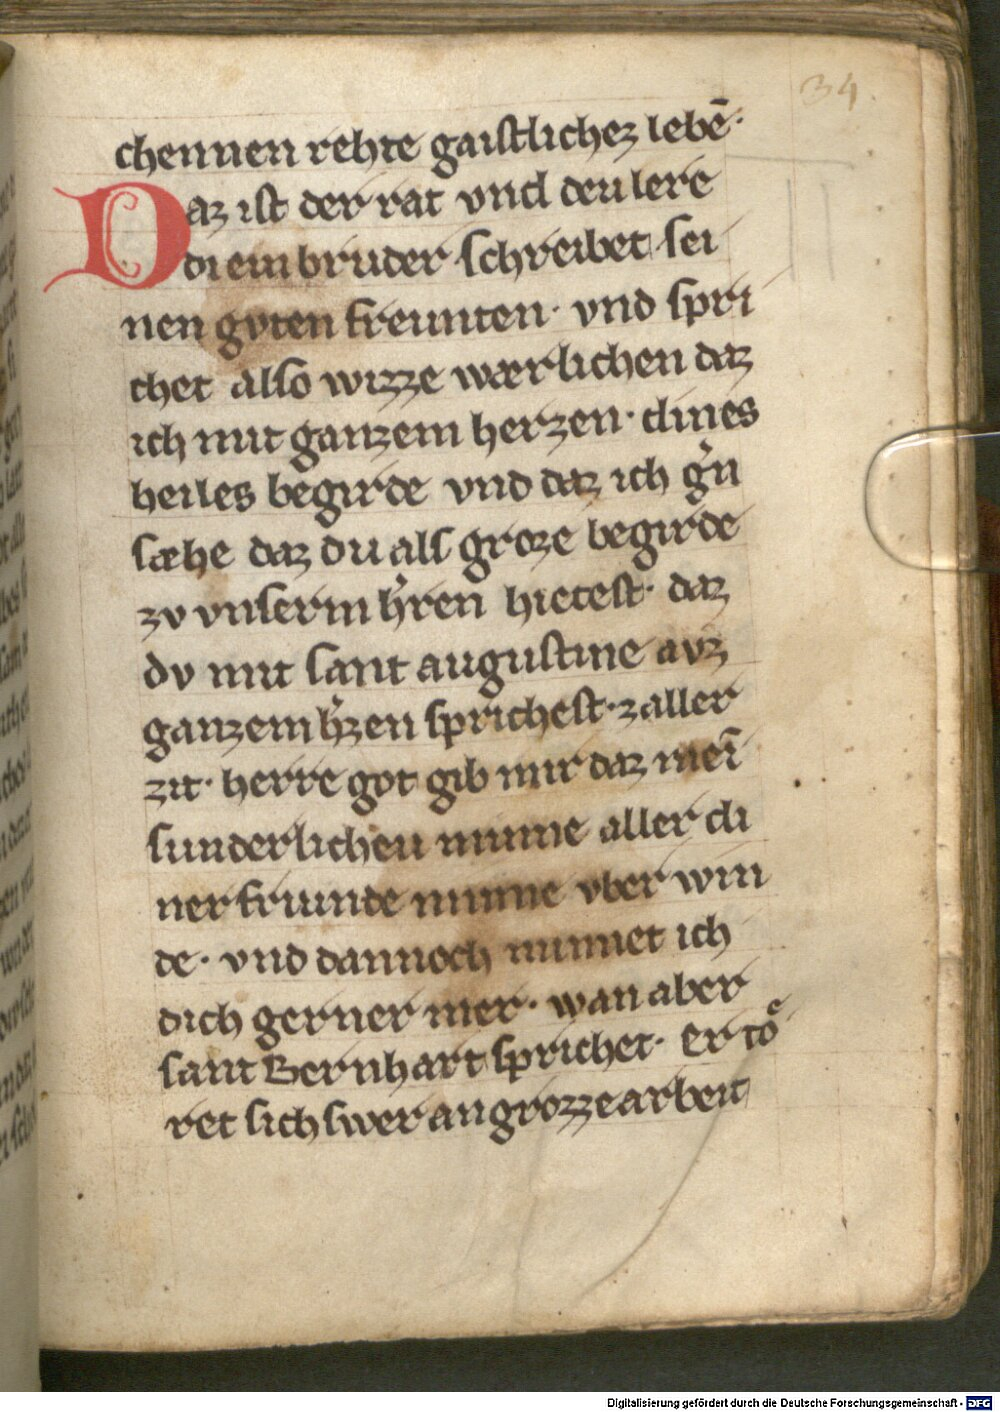 34.
chennen rehte gaistlichez lebē·
Daz ist der rat vnd deu lere
di ein bruder schreibet sei
nen gvten freunten· vnd spri
chet also wizze wærlichen daz
ich mit ganzem herzen· dines
heiles begirde vnd daz ich g̛n
sæhe daz du als groze begirde
zv vnserm h̛ren hietest· daz
dv mit sant augustine avz
ganzem h̛zen sprichest· zaller
zit· herre got gib mir daz meī
sunderlicheu minne aller di
ner friunde minne vber win
de· vnd dannoch minnet ich
dich gerner mer· wan aber
sant Bernhart sprichet· er toͤ
ret sich swer an grozze arbeit
Digitalisierung gefördert durch die Deutsche Forschungsgemeinschaft - DFG